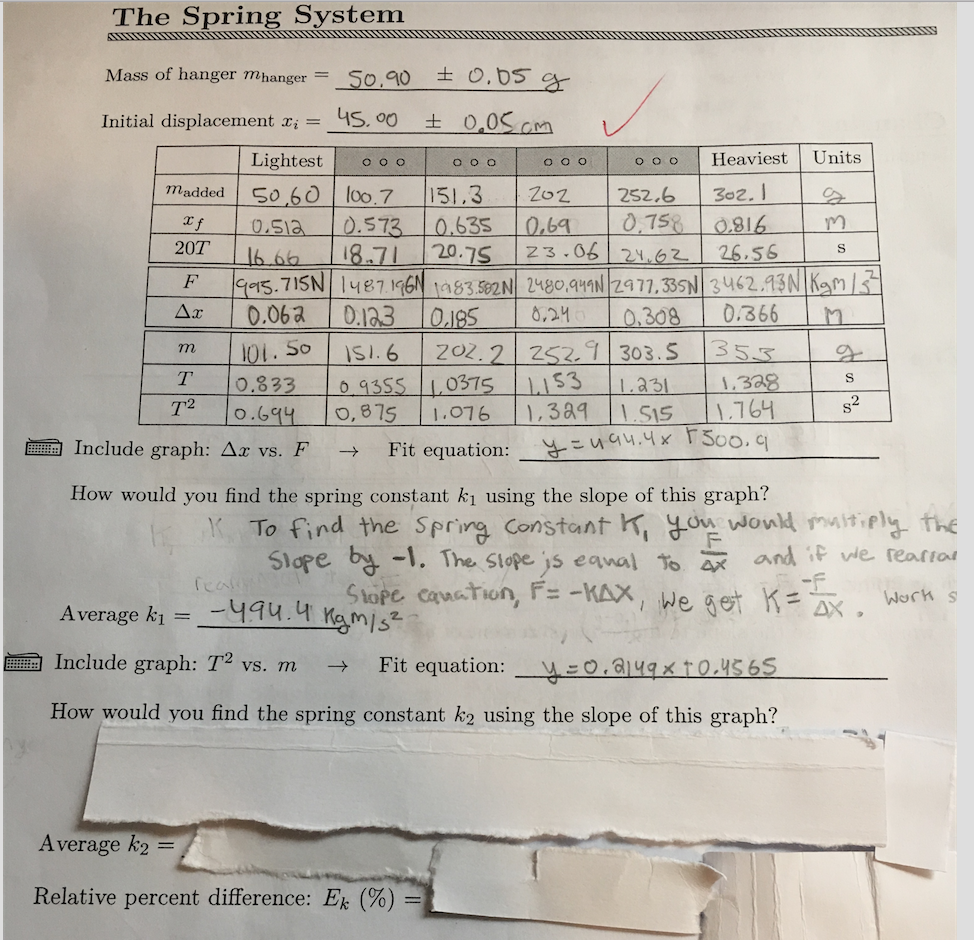 The Spring System
Mass of hanger mhanger = 50.90 ± 0.05 g
Initial displacement xi = 45.00 ± 0.05 cm
Lightest ooo ooo ooo ooo Heaviest Units
madded 50.60 100.7 151.3 202 252.6 302.1 g
xf 0.512 0.573 0.635 0.69 0.758 0.816 m
20T 16.66 18.71 20.75 23.06 24.62 26.56 s
F 995.715N 1487.196N 1983.502N 2480.949N 2977.335N 3462.93N Kgm/s²
Δx 0.062 0.123 0.185 0.24 0.308 0.366 m
m 101.50 151.6 202.2 252.9 303.5 353 g
T 0.833 0.9355 1.0375 1.153 1.231 1.328 s
T² 0.694 0.875 1.076 1.329 1.515 1.764 s²
Include graph: Δx vs. F → Fit equation: y=494.4x +500.9
How would you find the spring constant k1 using the slope of this graph?
To find the Spring Constant K, you would multiply the
Slope by -1. The Slope is equal to F/Δx and if we rearra
Slope equation, F= -KΔX, we get K= -F/ΔX. Work s
Average k1 = -494.4 Kgm/s²
Include graph: T² vs. m → Fit equation: y=0.2149x+0.4565
How would you find the spring constant k2 using the slope of this graph?
Average k2 =
Relative percent difference: Ek (%) =